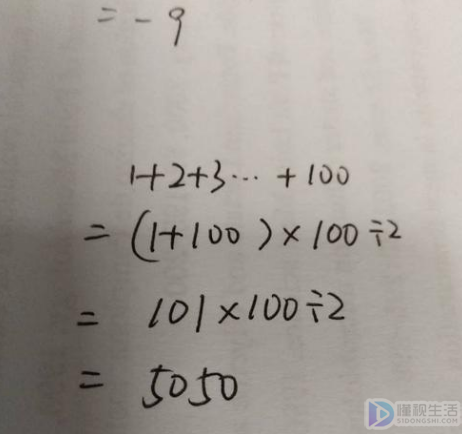 = - 9
1+2+3… +100
= (1+100)×100÷2
= 101×100÷2
= 5050
懂视生活
51DONGSHI.COM